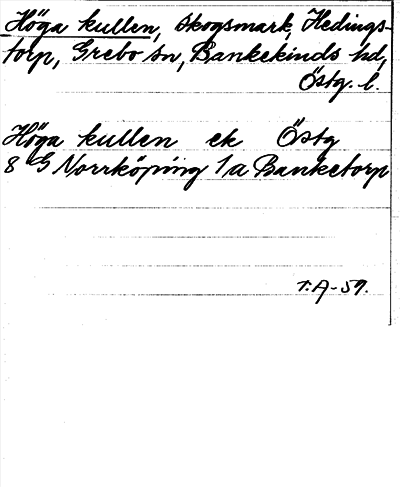 Höga kullen, skogsmark, Hedings-
torp, Grebo sn, Bankekinds hd,
Östg. l.
Höga kullen ek Östg
8 G Norrköping 1a Banketorp
T.A-57.